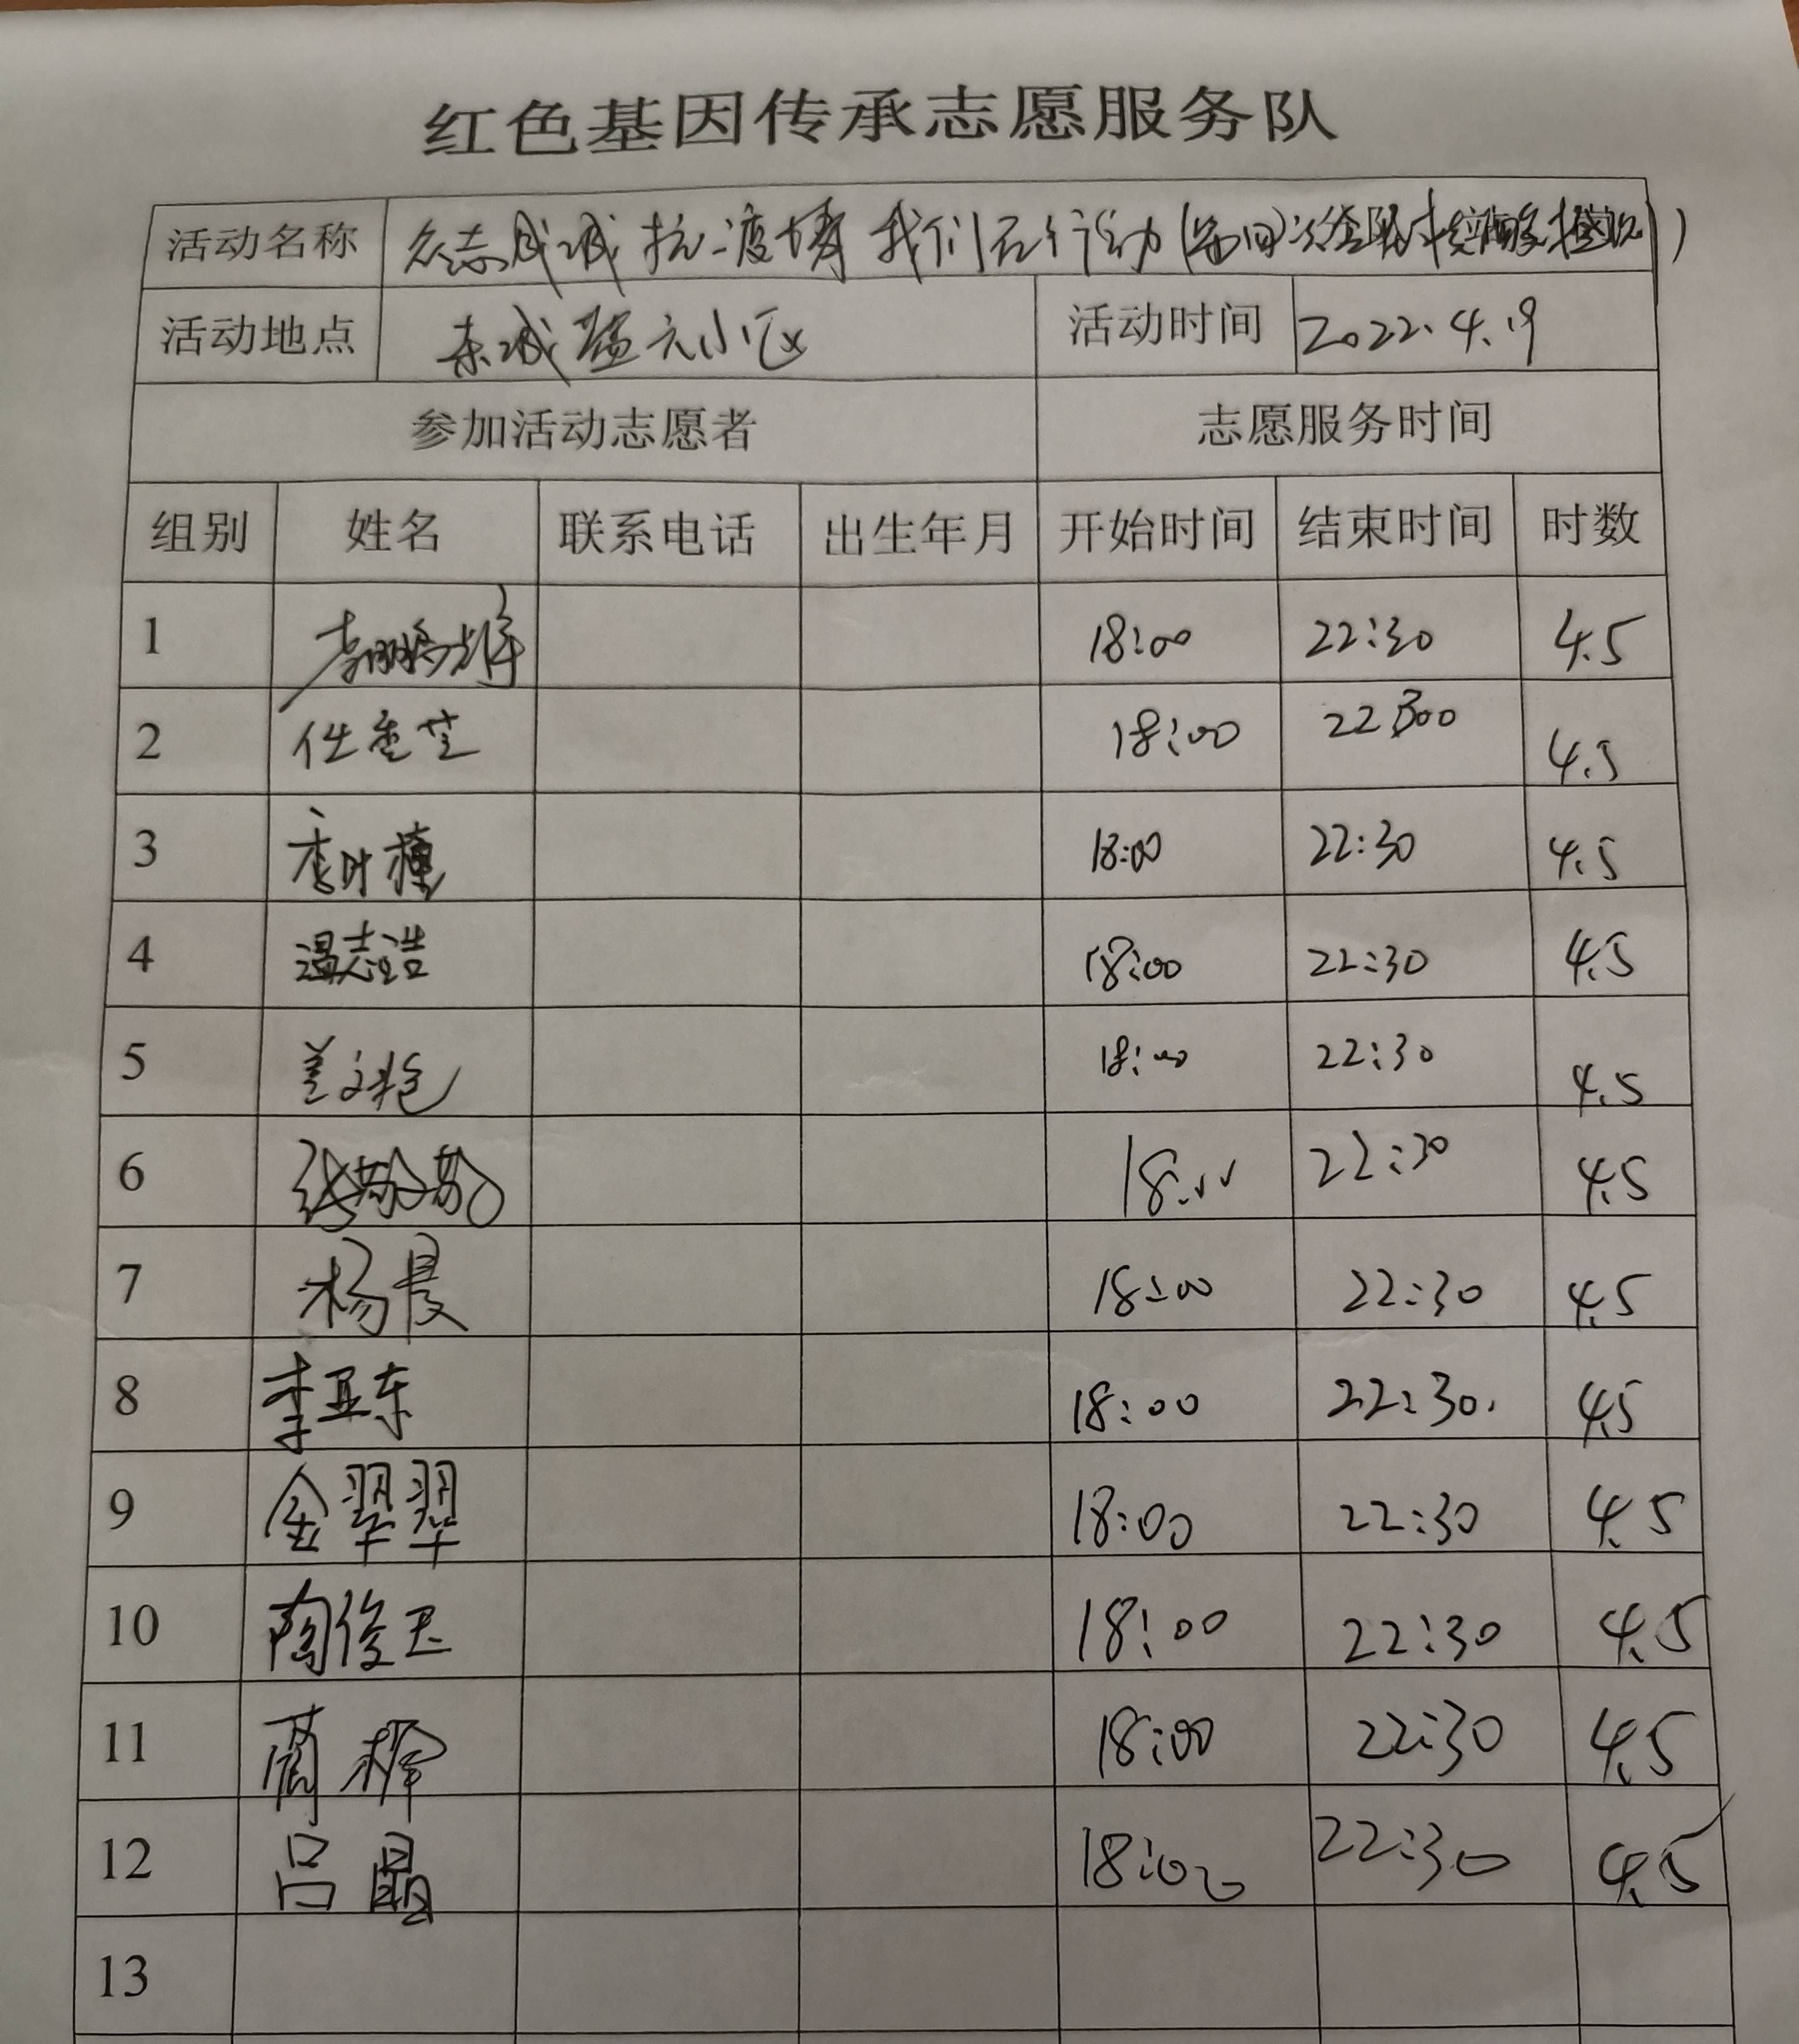 红色基因传承志愿服务队
活动名称 众志成城 抗疫情 我们在行动
活动地点 小区 活动时间 2022.4.19
参加活动志愿者 志愿服务时间
组别 姓名 联系电话 出生年月 开始时间 结束时间 时数
1 18:00 22:30 4.5
2 18:00 4.5
3 18:00 22:30 4.5
4 温志浩 18:00 22:30 4.5
5 姜文艳 18:00 22:30 4.5
6 18:00 22:30 4.5
7 杨晨 18:00 22:30 4.5
8 李亚东 18:00 22:30. 4.5
9 金翠翠 18:00 22:30 4.5
10 陶俊玉 18:00 22:30 4.5
11 蔺 18:00 22:30 4.5
12 吕晶 18:00 22:30 4.5
13